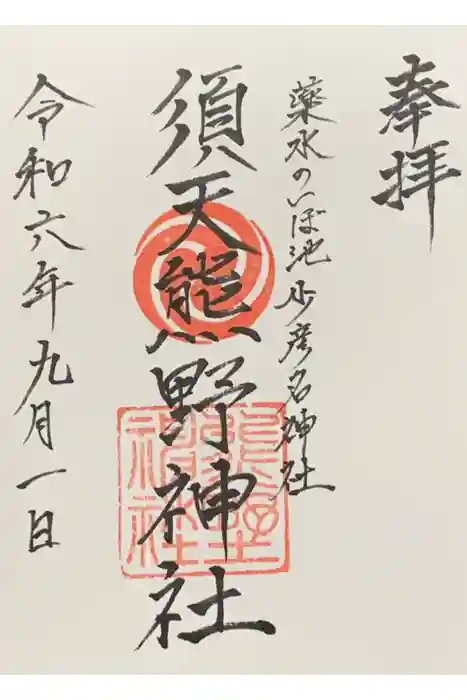 奉拝
薬水のいぼ池 少彦名神社
須天熊野神社
熊野神社
令和六年九月一日